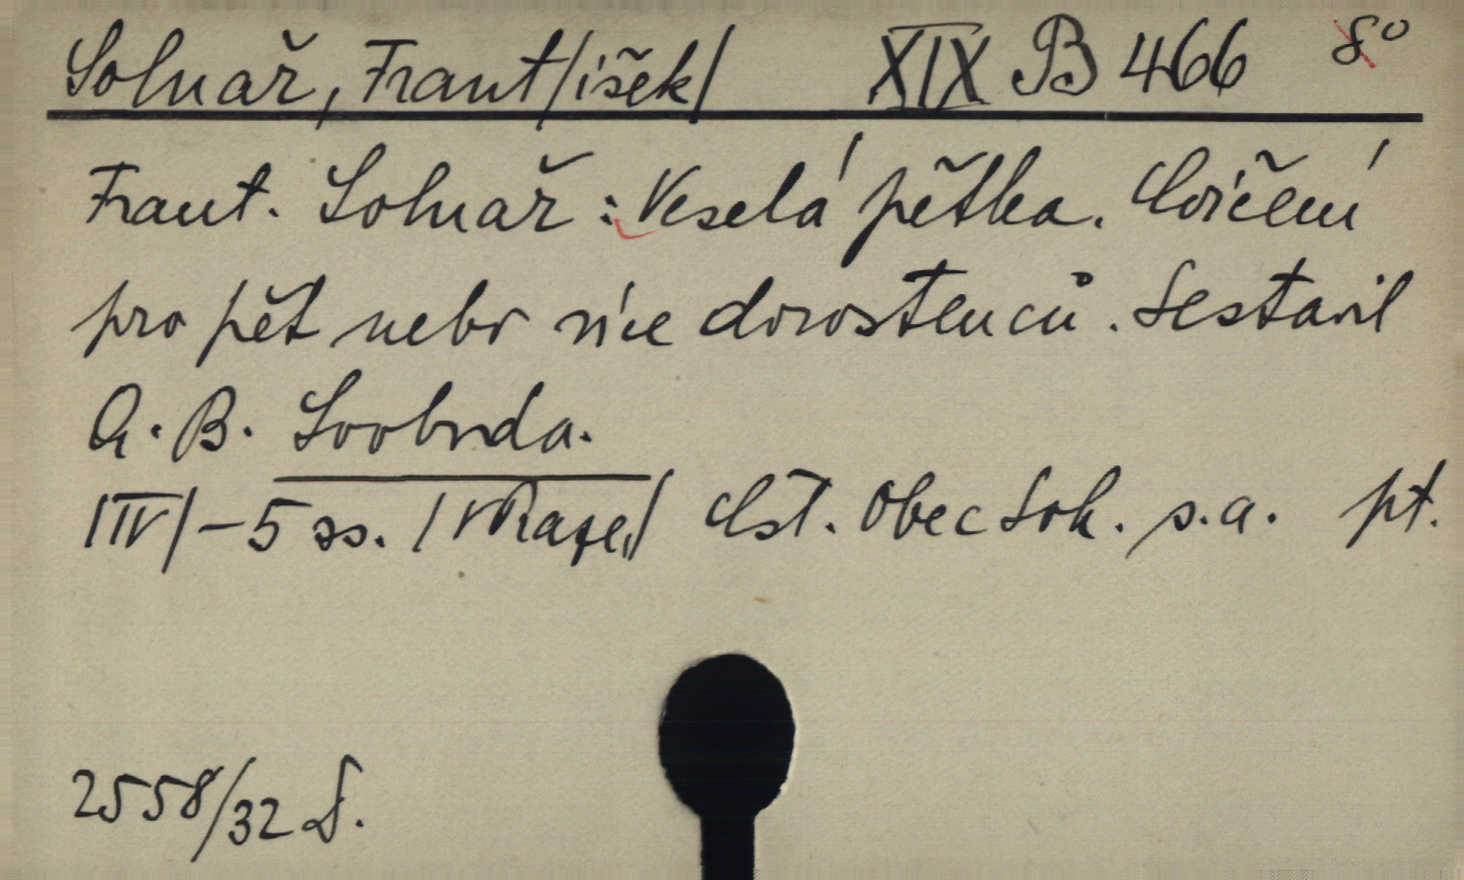 Solnař, Frant/išek/ XIX B 466 8°
Frant. Solnař: Veselá pětka. Cvičení
pro pět nebo více dorostenců. Sestavil
A. B. Svoboda.
/IV/ - 5 ss. / V Praze,/ Čst. Obec Sok. s.a. pt.
2558/32 S.